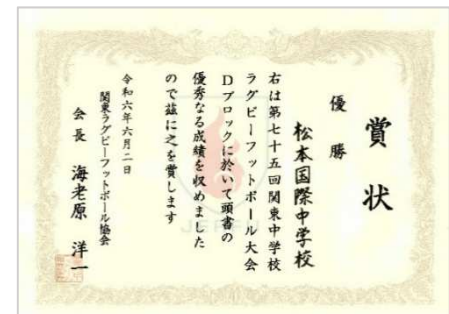 賞状
優勝
松本国際中学校
右は第七十五回関東中学校
ラグビーフットボール大会
Dブロックに於いて頭書の
優秀なる成績を収めました
ので茲に之を賞します
令和六年六月二日
関東ラグビーフットボール協会
会長 海老原 洋一
JERFU